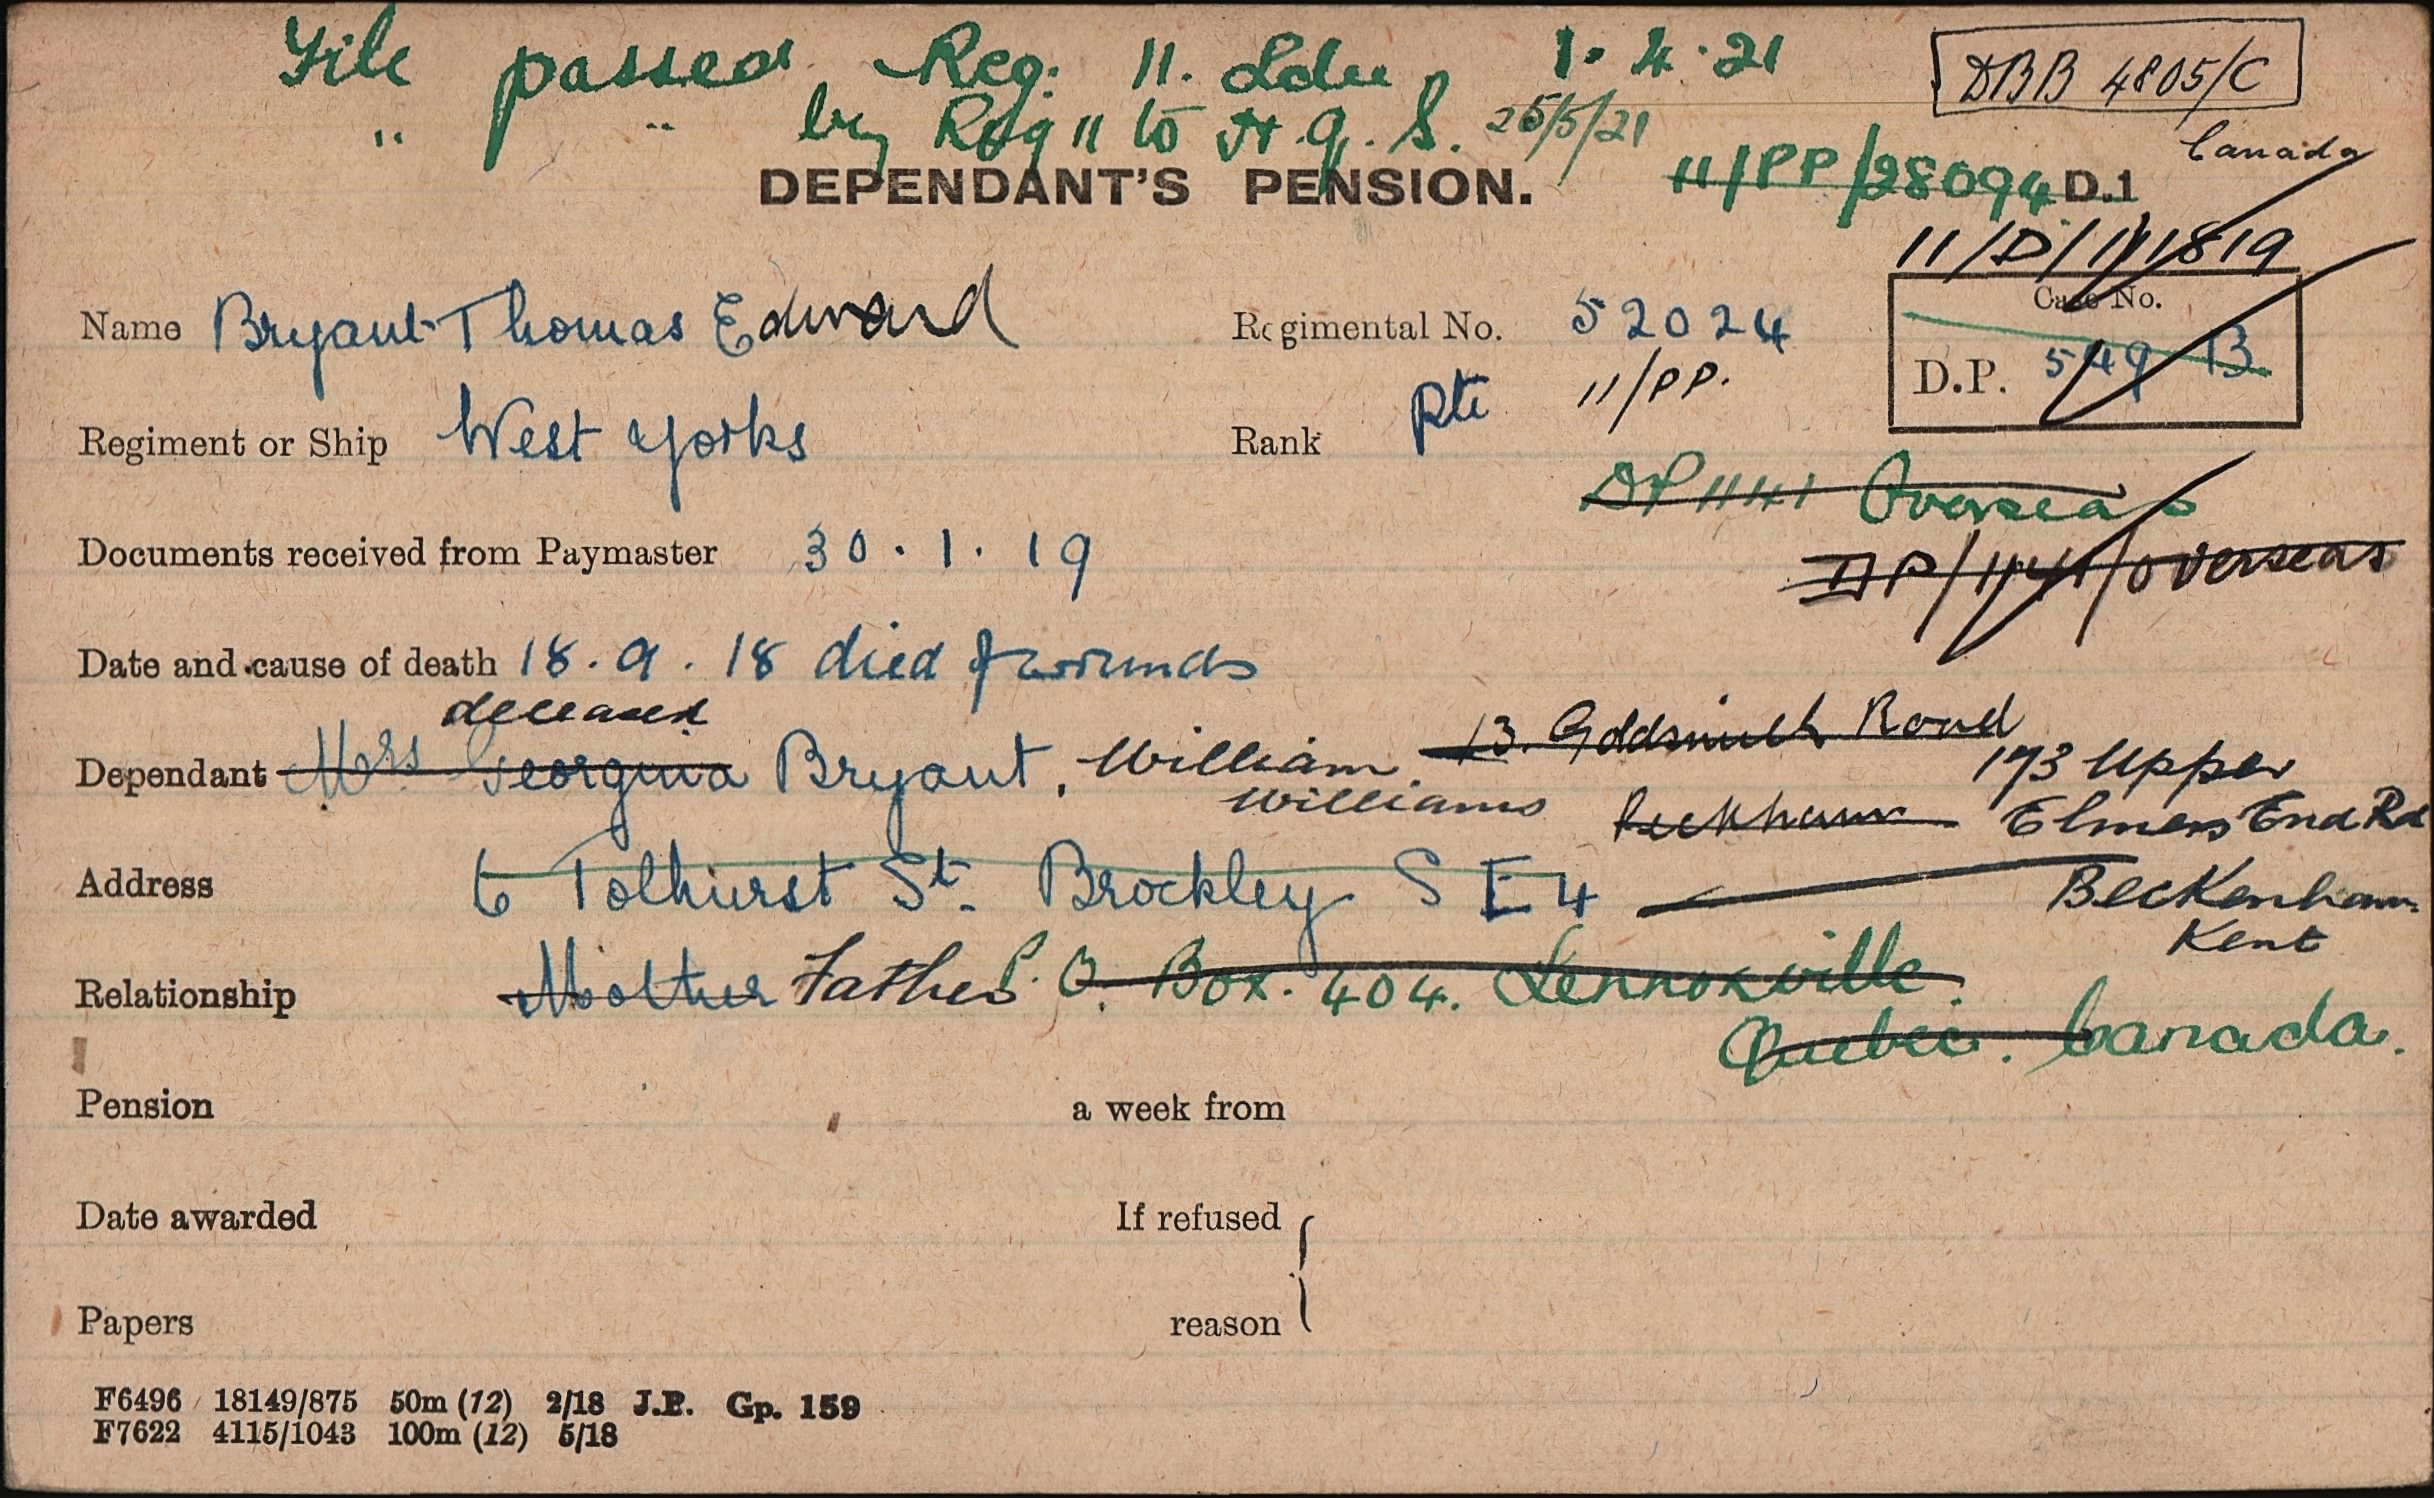 File passed Reg. 11. Ldn 1.4.21
" " by Reg 11 to H.Q.S. 25/5/21
DBB 4805/C
Canada
DEPENDANT'S PENSION.
11/PP/28094 D.1
11/D/111819
Case No.
D.P. 549 B
Name Bryant Thomas Edward
Regimental No. 52024
11/PP.
Regiment or Ship West Yorks
Rank Pte
DP 1141 Overseas
DP/1141/Overseas
Documents received from Paymaster 30.1.19
Date and cause of death 18.9.18 died of wounds
deceased
Dependant Mrs Georgina Bryant, William.
Williams
13. Goldsmith Road
Peckham
173 Upper
Elmers End Rd
Beckenham
Kent
Address 6 Tolhurst St. Brockley S E 4
Relationship Mother Father
P.O. Box. 404. Lennoxville.
Quebec. Canada.
Pension a week from
Date awarded If refused
Papers reason
F6496 18149/875 50m (12) 2/18 J.P. Gp. 159
F7622 4115/1043 100m (12) 5/18